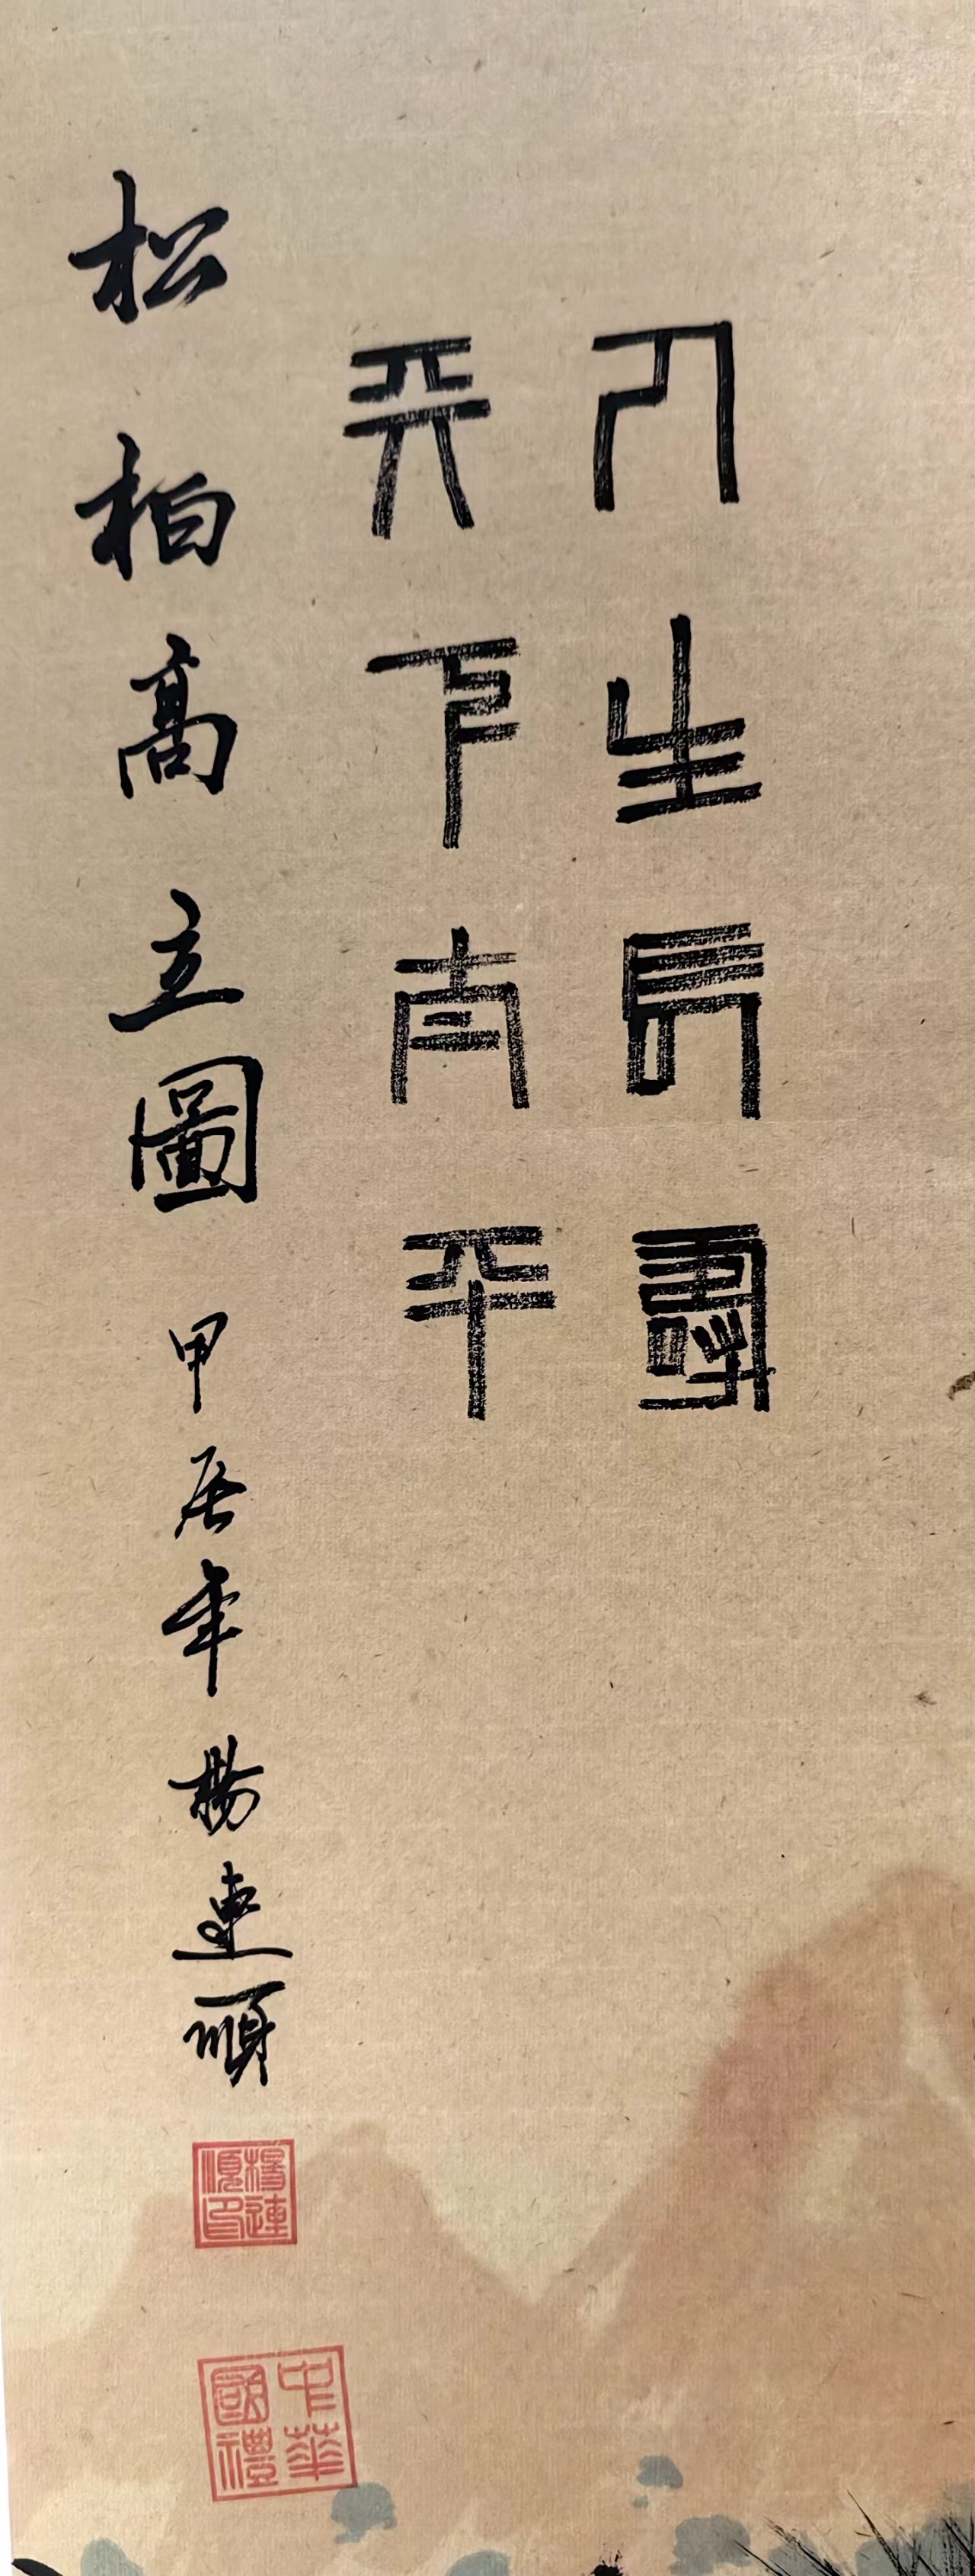 人生長壽
天下太平
松柏高立圖 甲辰年 楊連順
楊連順印
中華國禮